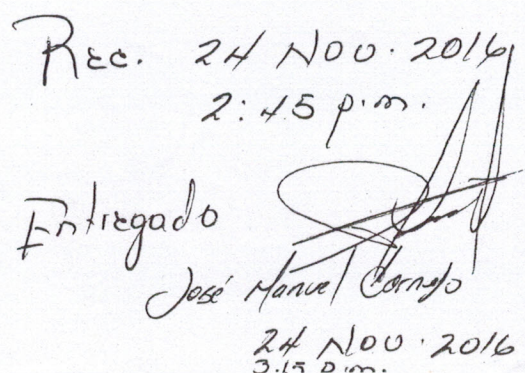 Rec. 24 Nov. 2016
2:45 p.m.
Entregado
José Manuel Cornejo
24 Nov. 2016
3:15 p.m.